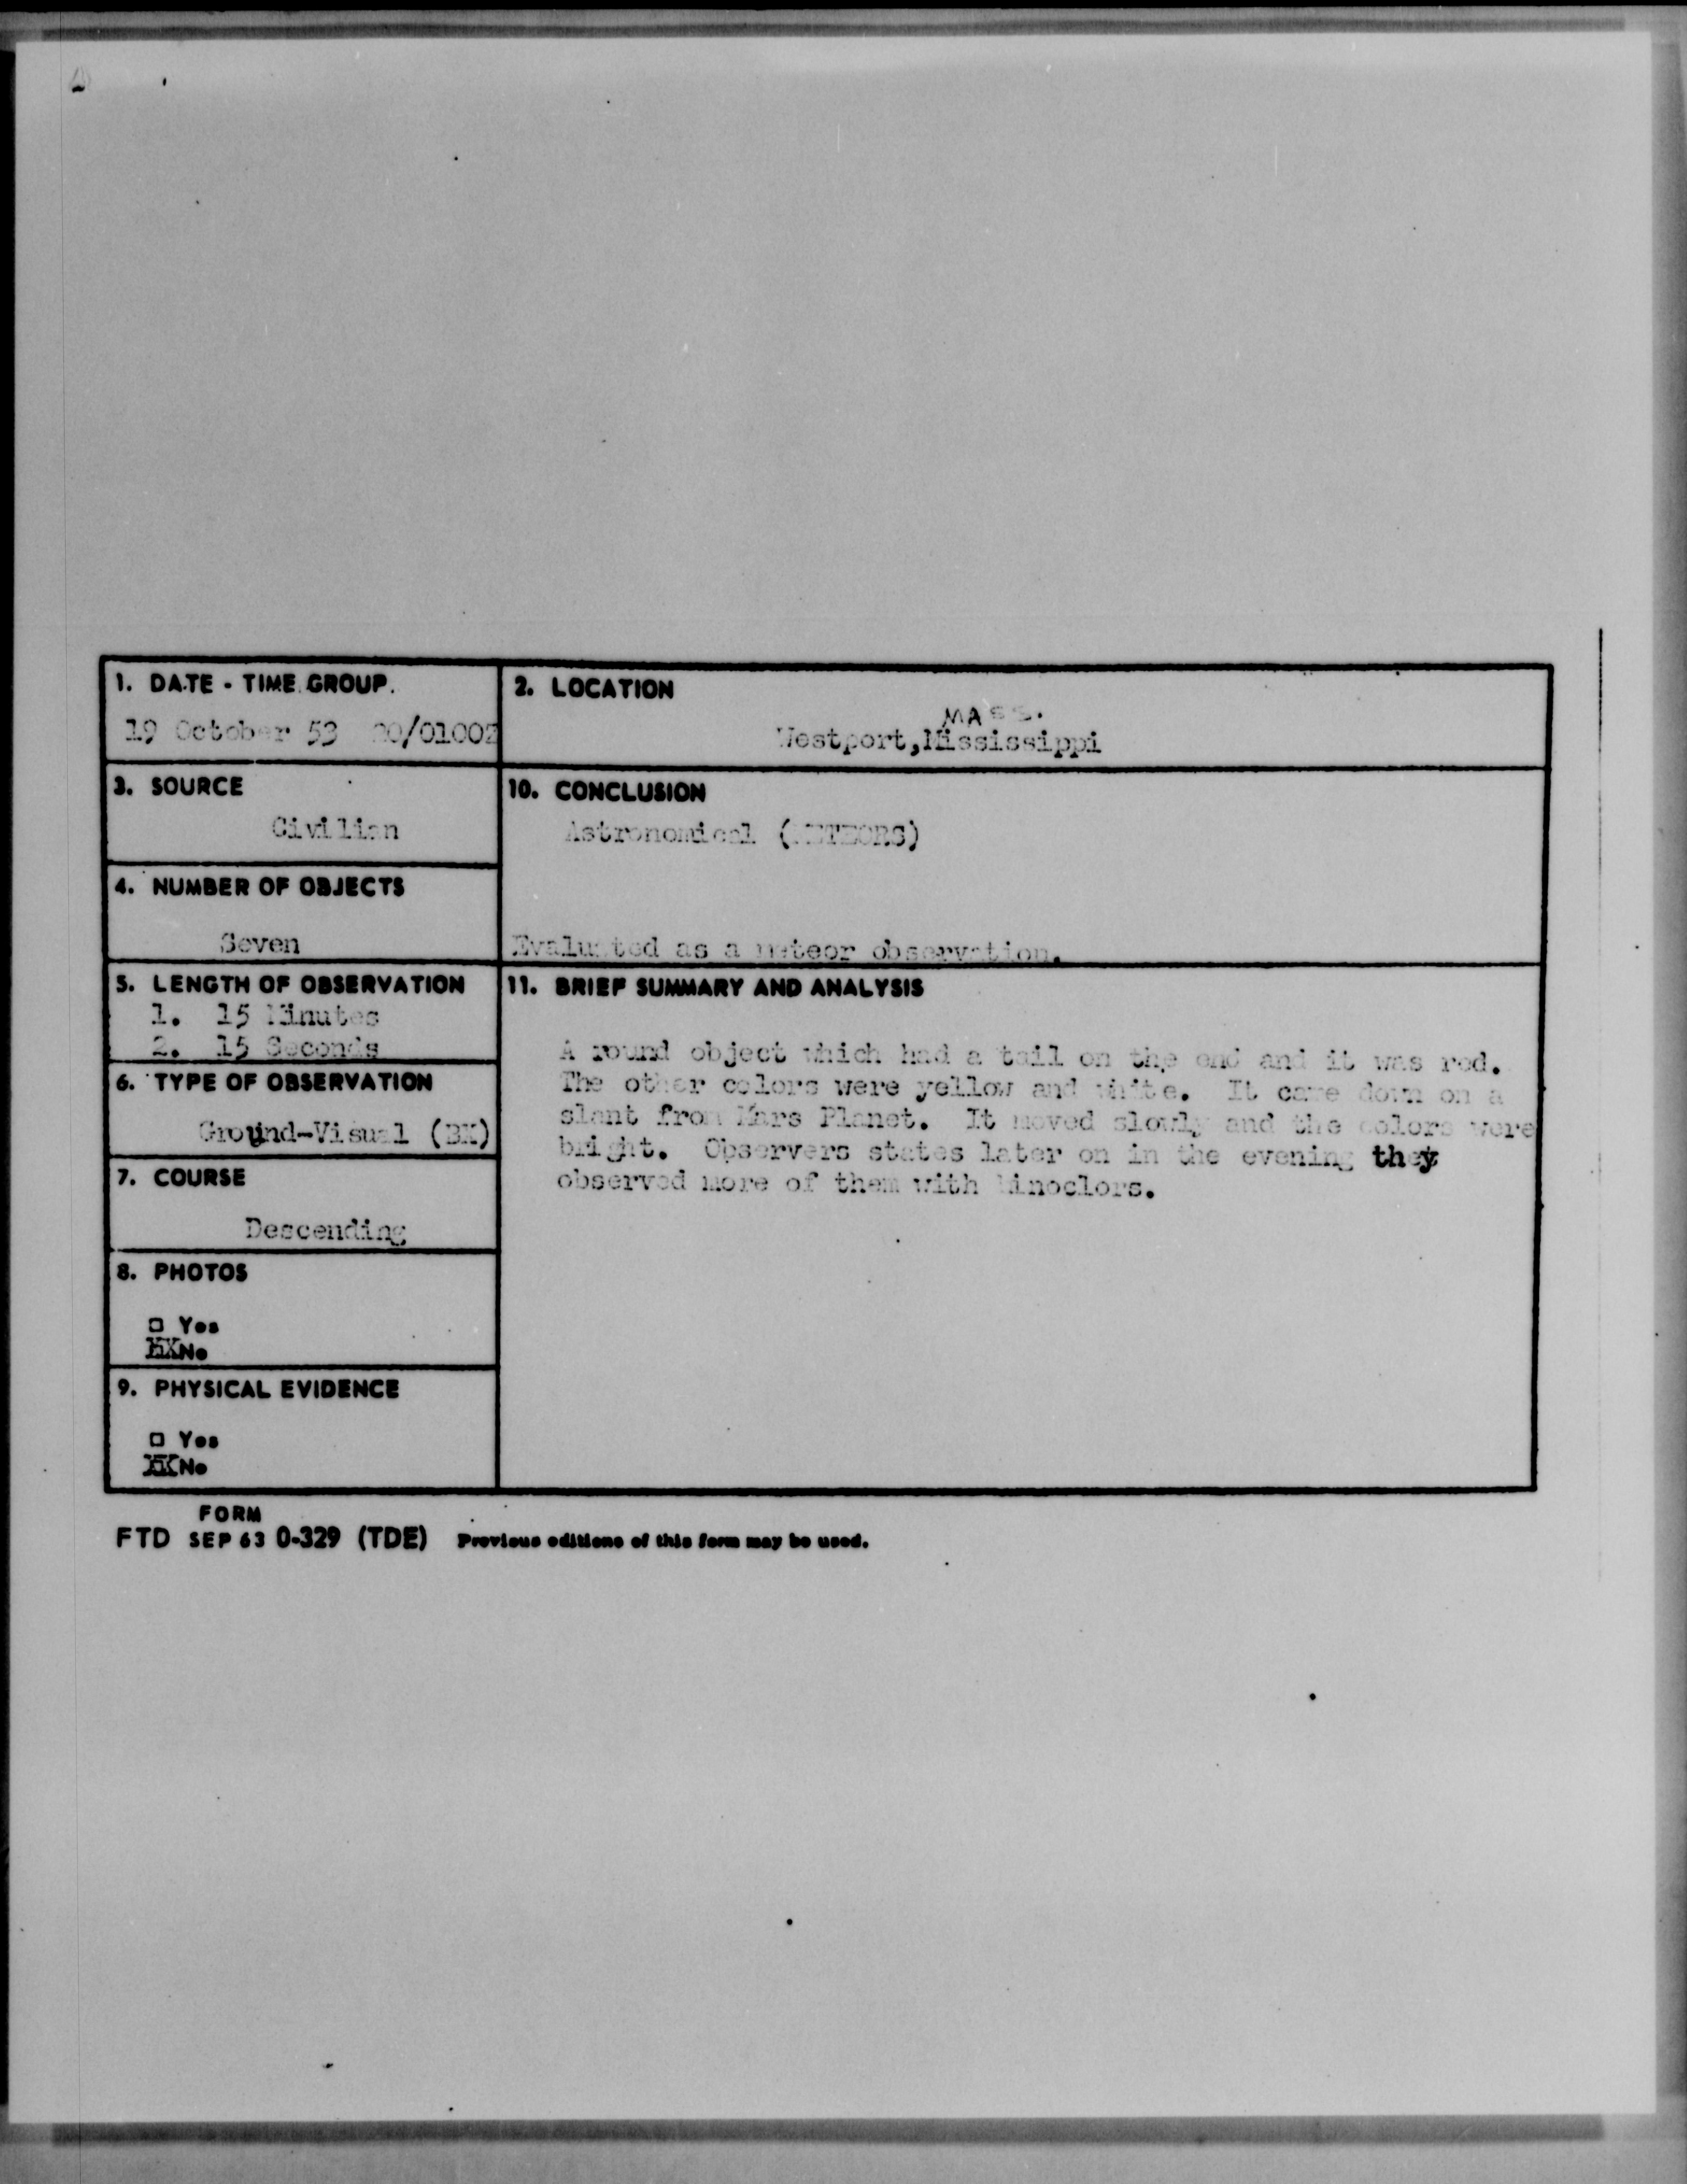 1. DATE - TIME GROUP.
19 October 53 20/0100Z
2. LOCATION
MASS.
Westport,Mississippi
3. SOURCE
Civilian
10. CONCLUSION
Astronomical (METEORS)
Evaluated as a meteor observation.
4. NUMBER OF OBJECTS
Seven
5. LENGTH OF OBSERVATION
1. 15 Minutes
2. 15 Seconds
11. BRIEF SUMMARY AND ANALYSIS
A round object which had a tail on the end and it was red.
The other colors were yellow and white. It came down on a
slant from Mars Planet. It moved slowly and the colors were
bright. Observers states later on in the evening they
observed more of them with binoclors.
6. TYPE OF OBSERVATION
Ground-Visual (BK)
7. COURSE
Descending
8. PHOTOS
□ Yes
XXNo
9. PHYSICAL EVIDENCE
□ Yes
XXNo
FORM
FTD SEP 63 0-329 (TDE) Previous editions of this form may be used.